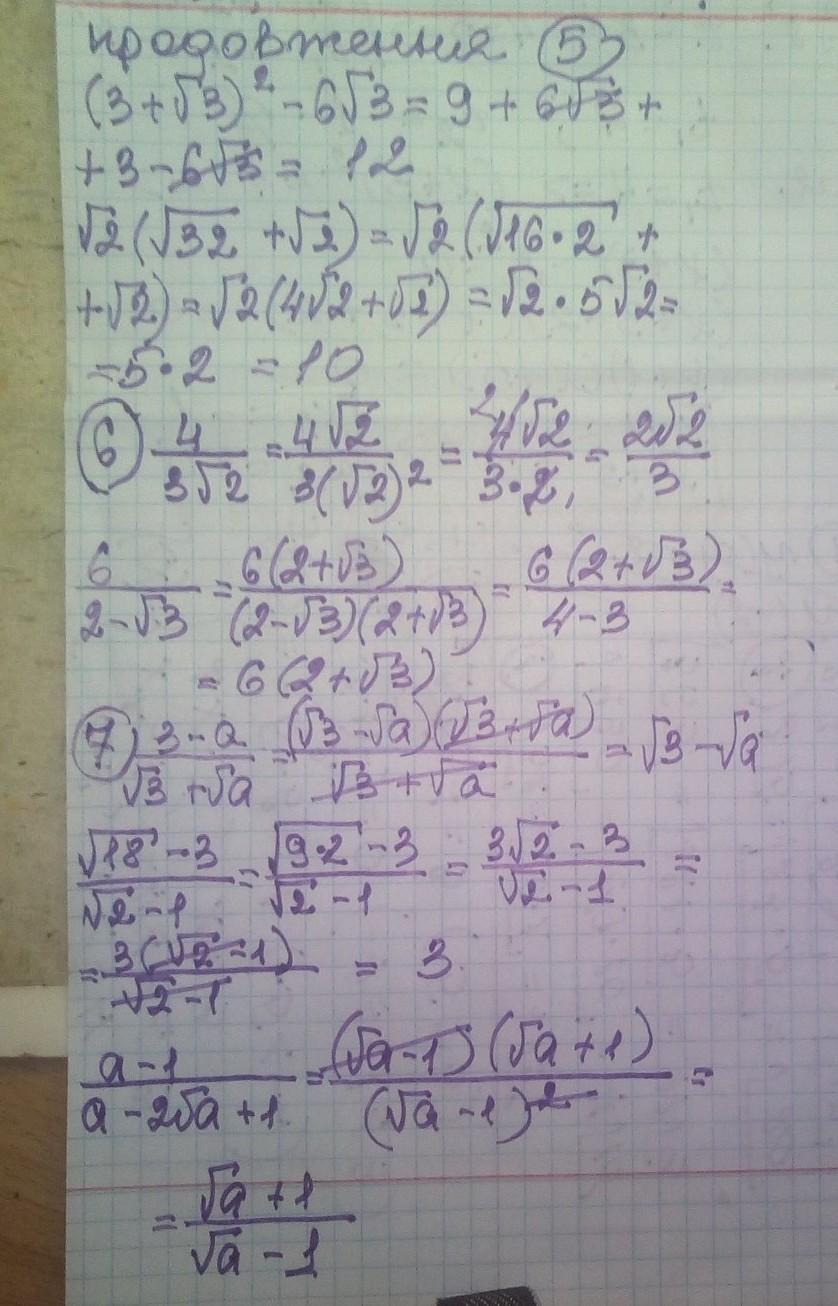 продовження ⑤
(3+√3)² - 6√3 = 9 + 6√3 +
+3-6√3 = 12
√2(√32 +√2) = √2(√16·2 +
+√2) = √2(4√2+√2) = √2·5√2=
=5·2 = 10
⑥ 4/(3√2) = 4√2/(3(√2)²) = 4√2/(3·2) = 2√2/3
6/(2-√3) = 6(2+√3)/((2-√3)(2+√3)) = 6(2+√3)/(4-3) =
= 6(2+√3)
⑦ (3-a)/(√3+√a) = (√3-√a)(√3+√a)/(√3+√a) = √3-√a
(√18-3)/(√2-1) = (√9·2-3)/(√2-1) = (3√2-3)/(√2-1) =
= 3(√2-1)/(√2-1) = 3
(a-1)/(a-2√a+1) = (√a-1)(√a+1)/(√a-1)² =
= (√a+1)/(√a-1)